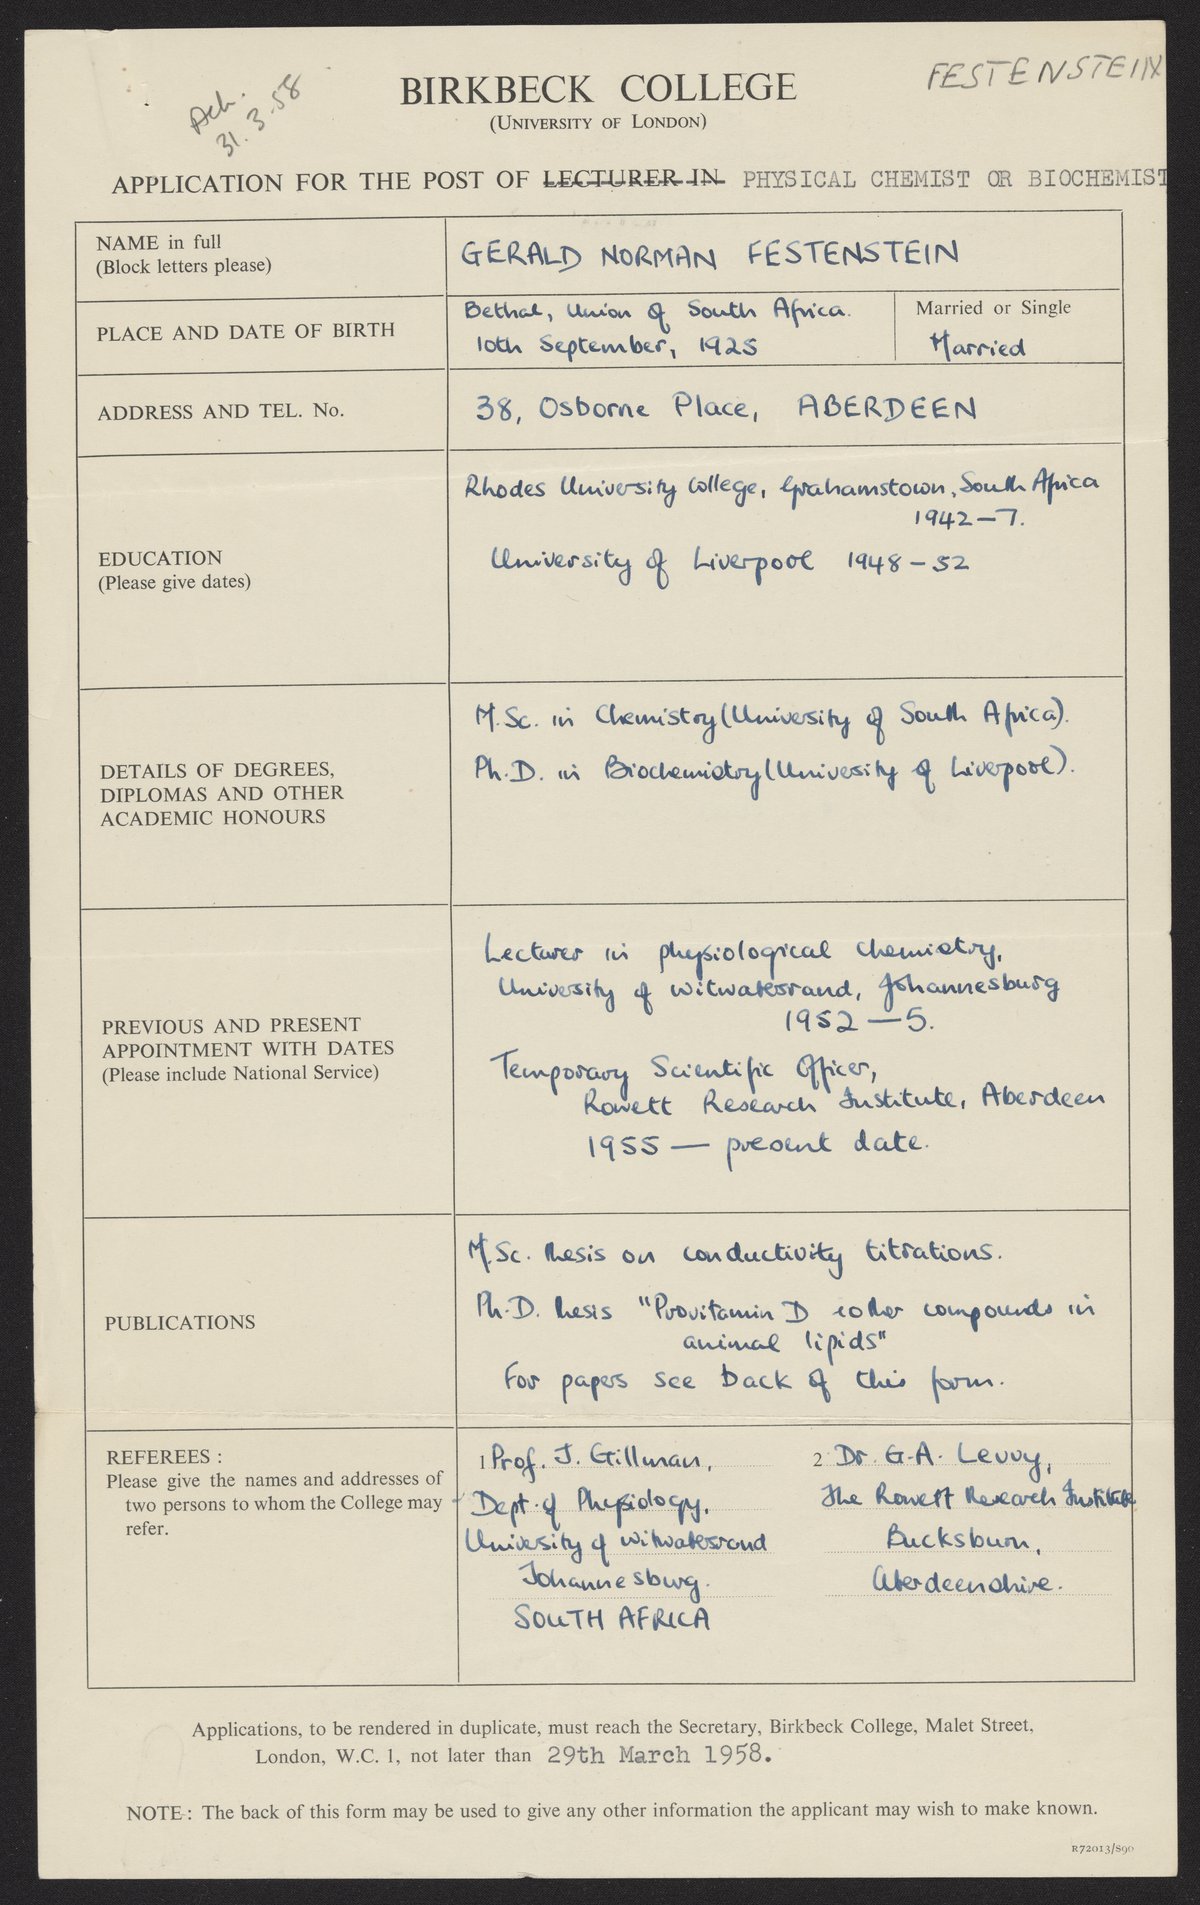 FESTENSTEIN
Ack.
31.3.58
BIRKBECK COLLEGE
(UNIVERSITY OF LONDON)
APPLICATION FOR THE POST OF LECTURER IN PHYSICAL CHEMIST OR BIOCHEMIST
NAME in full
(Block letters please)
GERALD NORMAN FESTENSTEIN
PLACE AND DATE OF BIRTH
Bethal, Union of South Africa.
10th September, 1925
Married or Single
Married
ADDRESS AND TEL. No.
38, Osborne Place, ABERDEEN
EDUCATION
(Please give dates)
Rhodes University College, Grahamstown, South Africa
1942-7.
University of Liverpool 1948-52
DETAILS OF DEGREES,
DIPLOMAS AND OTHER
ACADEMIC HONOURS
M.Sc. in Chemistry (University of South Africa).
Ph.D. in Biochemistry (University of Liverpool).
PREVIOUS AND PRESENT
APPOINTMENT WITH DATES
(Please include National Service)
Lecturer in physiological chemistry,
University of Witwatersrand, Johannesburg
1952-5.
Temporary Scientific Officer,
Rowett Research Institute, Aberdeen
1955 — present date.
PUBLICATIONS
M.Sc. thesis on conductivity titrations.
Ph.D. thesis "Provitamin D & other compounds in
animal lipids"
For papers see back of this form.
REFEREES :
Please give the names and addresses of
two persons to whom the College may
refer.
1 Prof. J. Gillman,
Dept. of Physiology,
University of Witwatersrand
Johannesburg.
SOUTH AFRICA
2 Dr. G.A. Levvy,
The Rowett Research Institute
Bucksburn,
Aberdeenshire.
Applications, to be rendered in duplicate, must reach the Secretary, Birkbeck College, Malet Street,
London, W.C. 1, not later than 29th March 1958.
NOTE : The back of this form may be used to give any other information the applicant may wish to make known.
R72013/S90